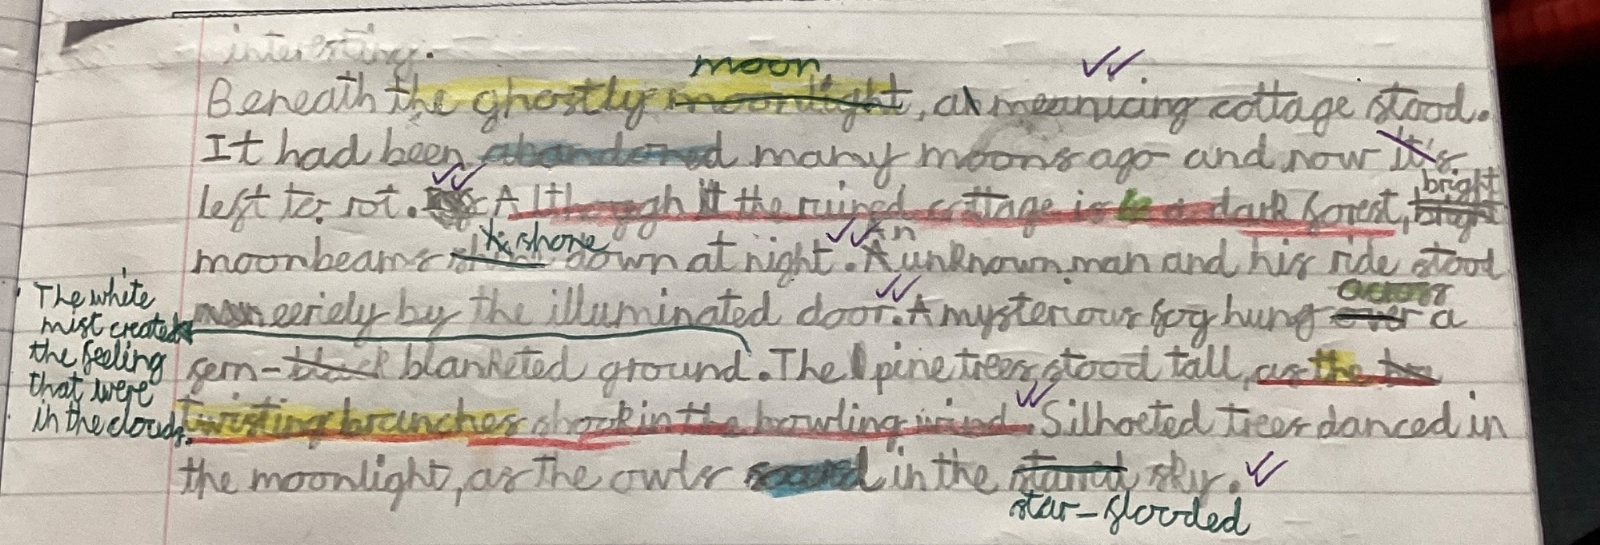 interesting.
moon
Beneath the ghostly moonlight, a meanicing cottage stood.
It had been abandoned many moons ago and now it's
bright
left to rot. Although it the ruined cottage is in a dark forest, bright
shone An
moonbeams down at night. A unknown man and his ride stood
across
eeriely by the illuminated door. A mysterious fog hung over a
fern-black blanketed ground. The pine trees stood tall, as the
twisting branches shook in the howling wind. Silhoeted trees danced in
the moonlight, as the owls soared in the starred sky.
star-flooded
The white
mist created
the feeling
that were
in the clouds.